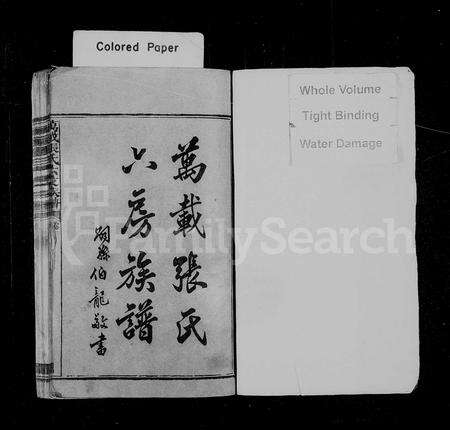 Colored Paper
Whole Volume
Tight Binding
Water Damage
萬載張氏
六房族譜
嗣孫伯龍敬書
FamilySearch